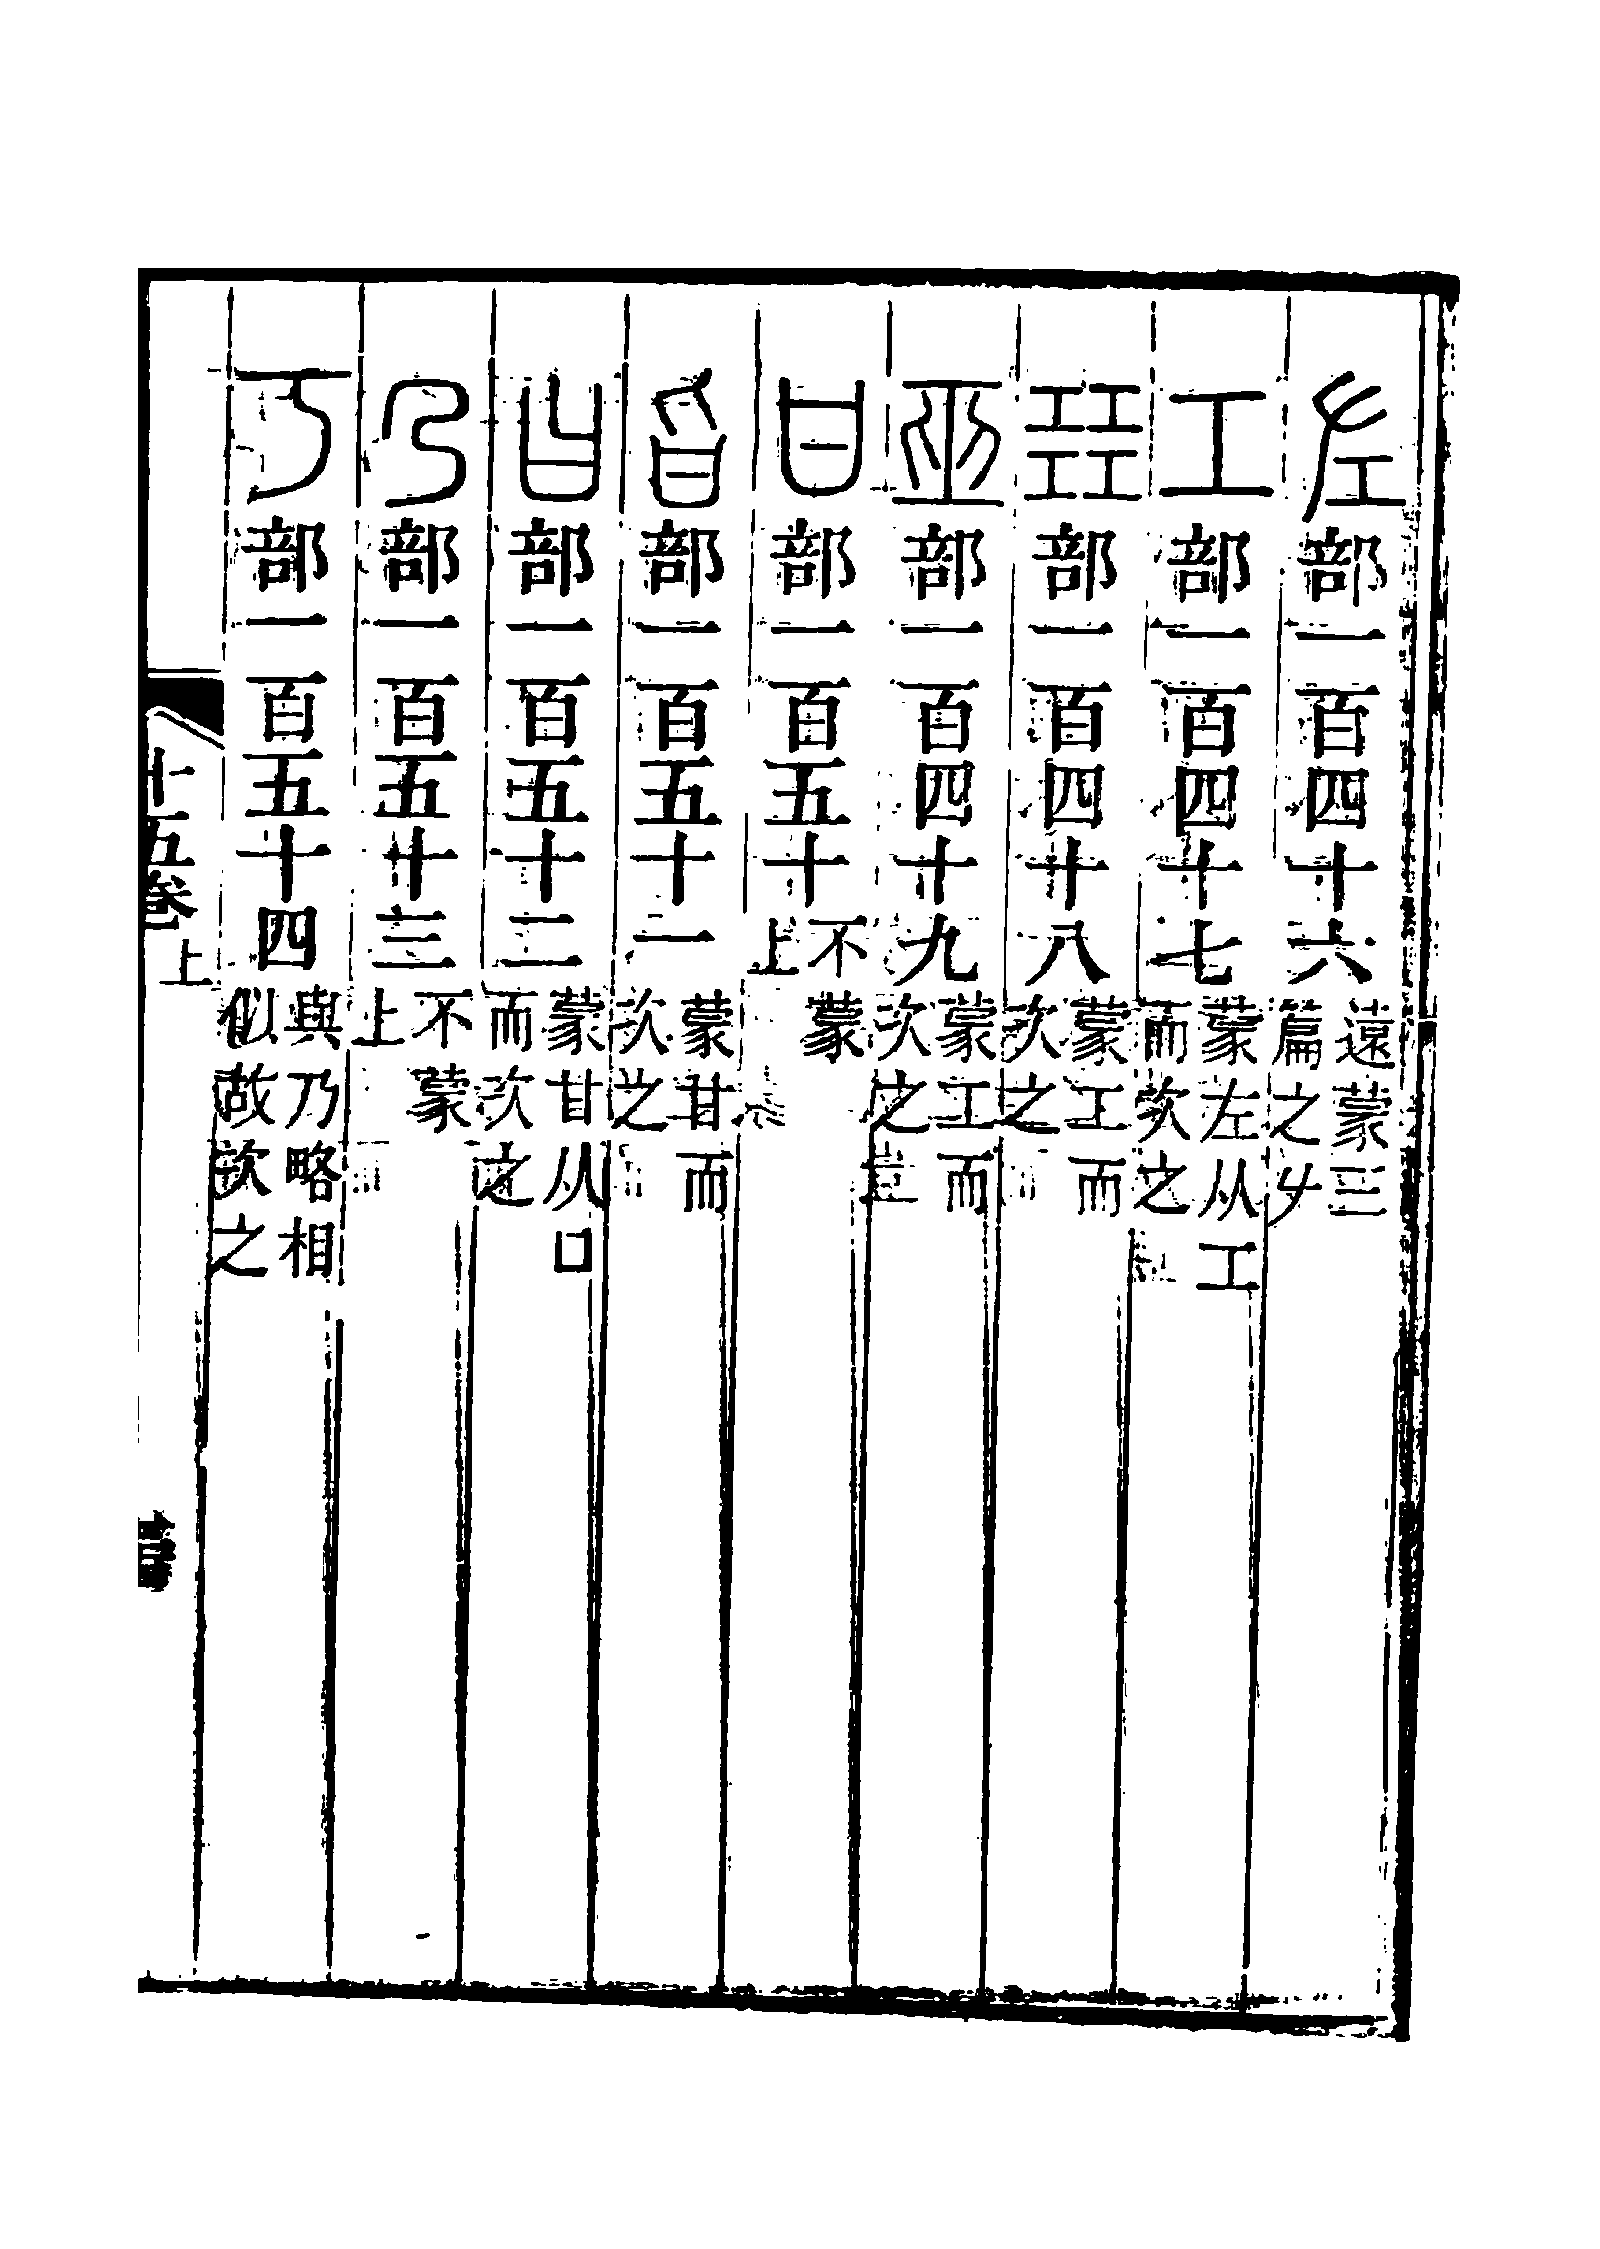 左部一百四十六遠蒙三篇之𠂇
工部一百四十七蒙左从工而次之
㠭部一百四十八蒙工而次之
巫部一百四十九蒙工而次之
甘部一百五十不蒙上
旨部一百五十一蒙甘而次之
曰部一百五十二蒙甘从口而次之
乃部一百五十三不蒙上
丂部一百五十四與乃略相似故次之
十五卷上